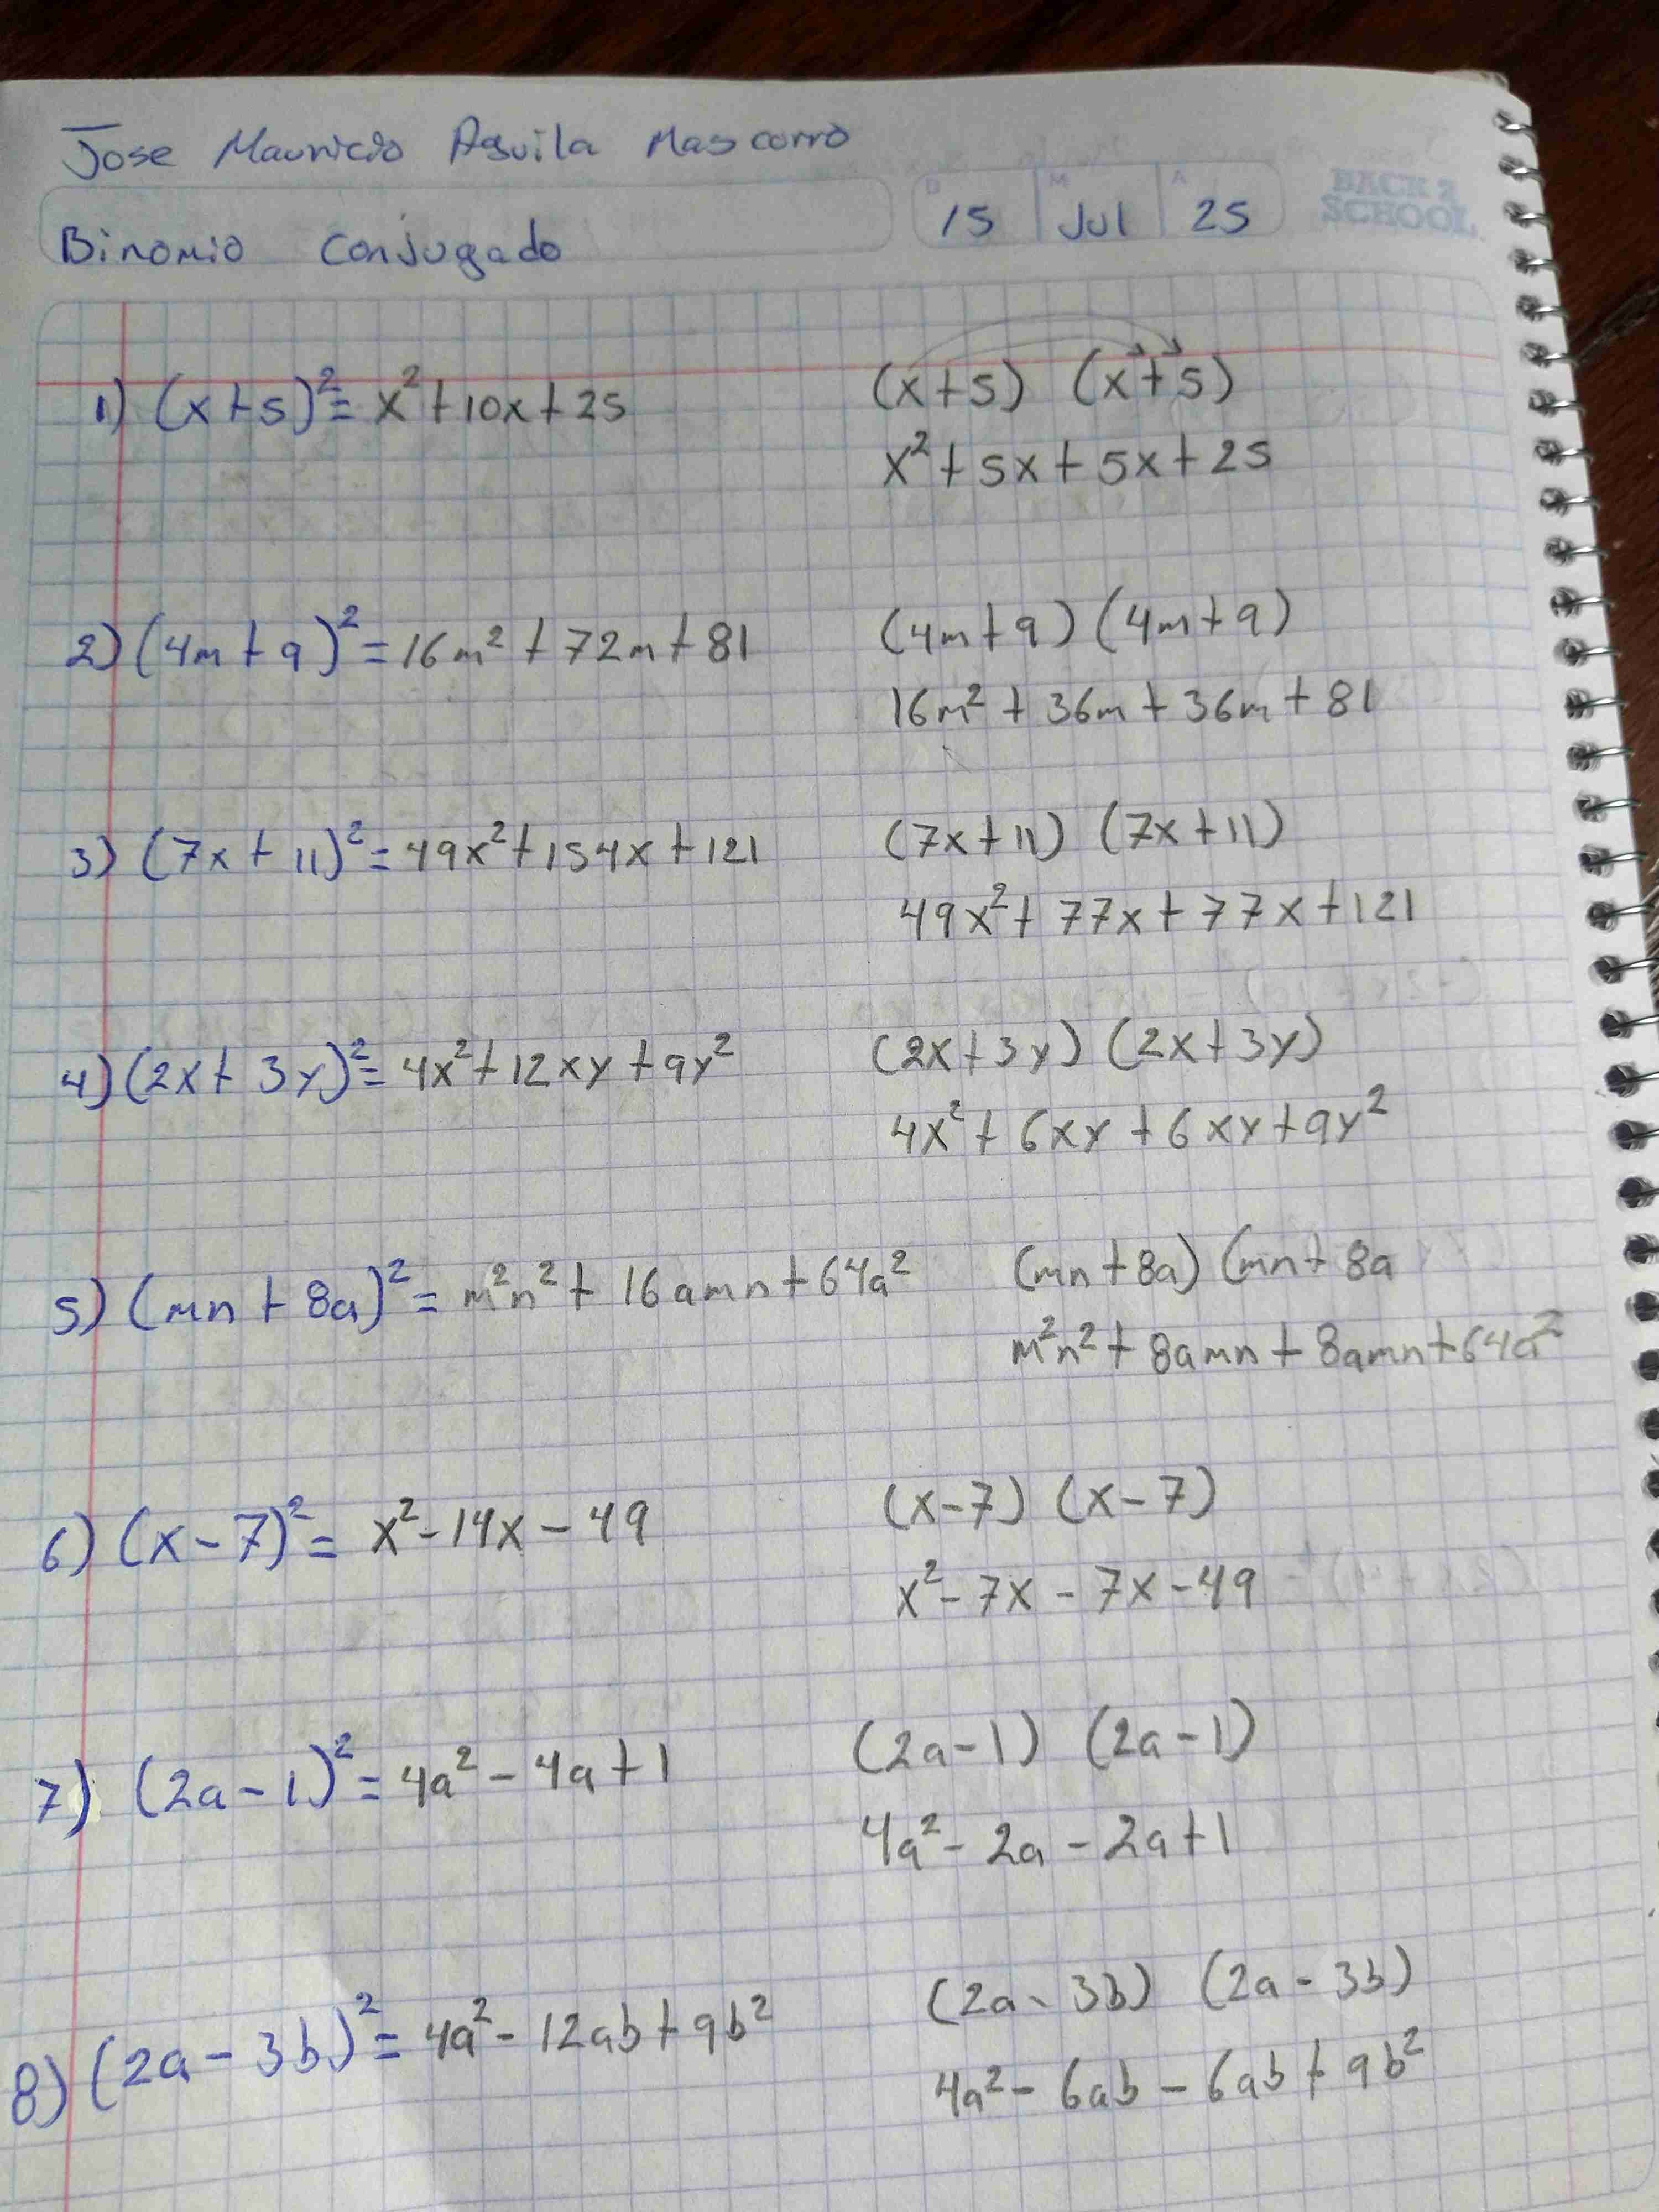 Jose Mauricio Aguila Mascorro
D M A
15 Jul 25
BACK 2
SCHOOL
Binomio Conjugado
1) (x+5)² = x²+10x+25
(x+5) (x+5)
x²+5x+5x+25
2) (4m+9)² = 16m²+72m+81
(4m+9)(4m+9)
16m²+36m+36m+81
3) (7x+11)² = 49x²+154x+121
(7x+11) (7x+11)
49x²+77x+77x+121
4) (2x+3y)² = 4x²+12xy+9y²
(2x+3y)(2x+3y)
4x²+6xy+6xy+9y²
5) (mn+8a)² = m²n²+16amn+64a²
(mn+8a)(mn+8a
m²n²+8amn+8amn+64a²
6) (x-7)² = x²-14x-49
(x-7) (x-7)
x²-7x-7x-49
7) (2a-1)² = 4a²-4a+1
(2a-1) (2a-1)
4a²-2a-2a+1
8) (2a-3b)² = 4a²-12ab+9b²
(2a-3b) (2a-3b)
4a²-6ab-6ab+9b²